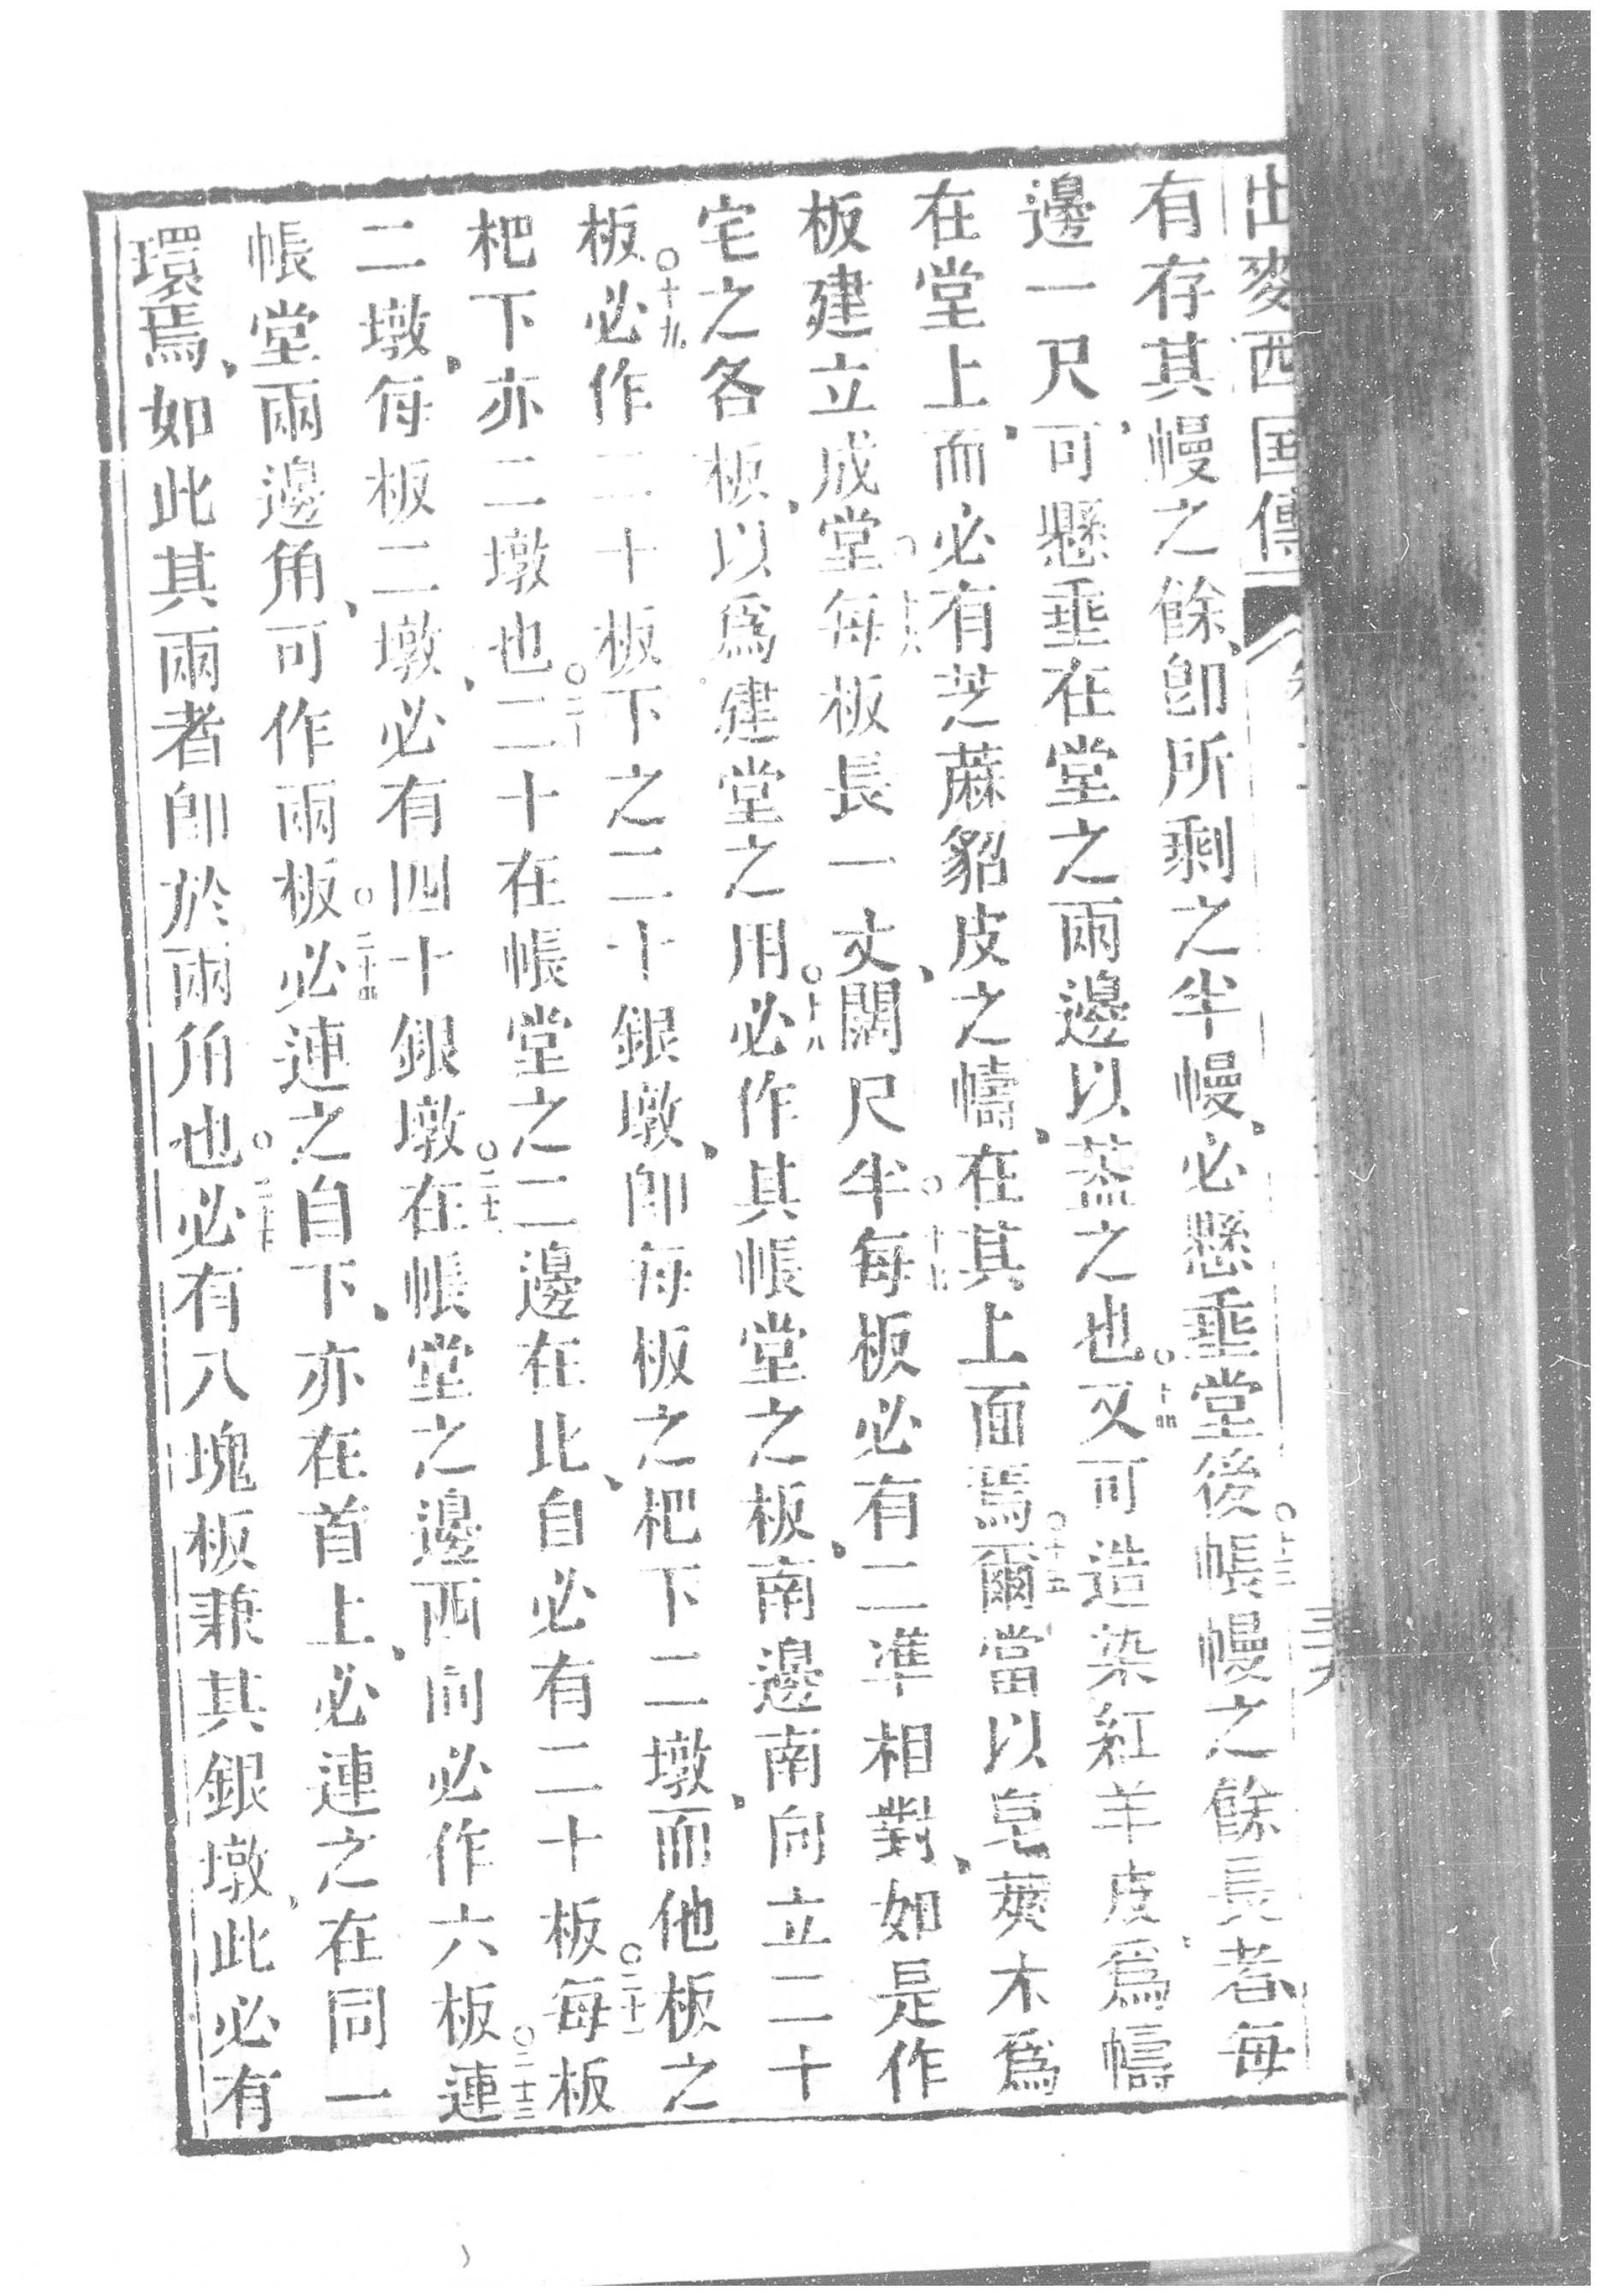 出麥西国傳
有存其幔之餘、卽所剩之半幔、必懸垂堂後○十三帳幔之餘長者、每
邊一尺、可懸垂在堂之兩邊以蓋之也○十四又可造染紅羊皮、爲幬
在堂上、而必有芝蔴貂皮之幬、在其上面焉○十五爾當以皂莢木爲
板建立成堂○十六每板長一丈、闊尺半○十七每板必有二準相對、如是作
宅之各板、以爲建堂之用○十八必作其帳堂之板、南邊南向立二十
板○十九必作二十板下之二十銀墩、卽每板之杷下二墩、而他板之
杷下亦二墩也○二十二十在帳堂之二邊在此、自必有二十板○二十一每板
二墩、每板二墩、必有四十銀墩○二十二在帳堂之邊西向必作六板○二十三連
帳堂兩邊角、可作兩板○二十四必連之自下、亦在首上、必連之在同一
環焉、如此其兩者卽於兩角也○二十五必有八塊板兼其銀墩、此必有